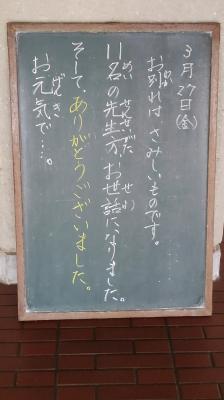 3月27日(金)
お別れは、さみしいものです。
11名の先生方、お世話になりました。
そして、ありがとうございました。
お元気で…。